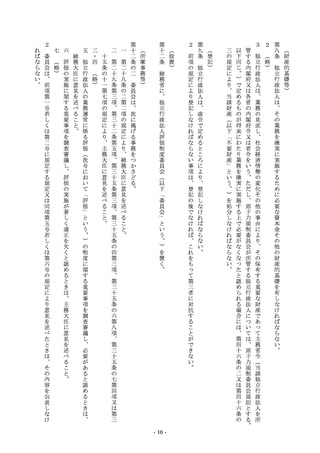 （財産的基礎等）
第八条　独立行政法人は、その業務を確実に実施するために必要な資本金その他の財産的基礎を有しなければならない。
２　（略）
３　独立行政法人は、業務の見直し、社会経済情勢の変化その他の事由により、その保有する重要な財産であって主務省令（当該独立行政法人を所
管する内閣府又は各省の内閣府令又は省令をいう。ただし、原子力規制委員会が所管する独立行政法人については、原子力規制委員会規則とする。
以下同じ。）で定めるものが将来にわたり業務を確実に実施する上で必要がなくなったと認められる場合には、第四十六条の二又は第四十六条の
三の規定により、当該財産（以下「不要財産」という。）を処分しなければならない。
（登記）
第九条　独立行政法人は、政令で定めるところにより、登記しなければならない。
２　前項の規定により登記しなければならない事項は、登記の後でなければ、これをもって第三者に対抗することができない。
（設置）
第十二条　総務省に、独立行政法人評価制度委員会（以下「委員会」という。）を置く。
（所掌事務等）
第十二条の二　委員会は、次に掲げる事務をつかさどる。
一　第二十八条の二第二項の規定により、総務大臣に意見を述べること。
二　第二十九条第三項、第三十二条第五項、第三十五条第三項、第三十五条の四第三項、第三十五条の六第八項、第三十五条の七第四項又は第三
十五条の十一第七項の規定により、主務大臣に意見を述べること。
三・四　（略）
五　独立行政法人の業務運営に係る評価（次号において「評価」という。）の制度に関する重要事項を調査審議し、必要があると認めるときは、
総務大臣に意見を述べること。
六　評価の実施に関する重要事項を調査審議し、評価の実施が著しく適正を欠くと認めるときは、主務大臣に意見を述べること。
七　（略）
２　委員会は、前項第一号若しくは第二号に規定する規定又は同項第五号若しくは第六号の規定により意見を述べたときは、その内容を公表しなけ
ればならない。
- 10 -